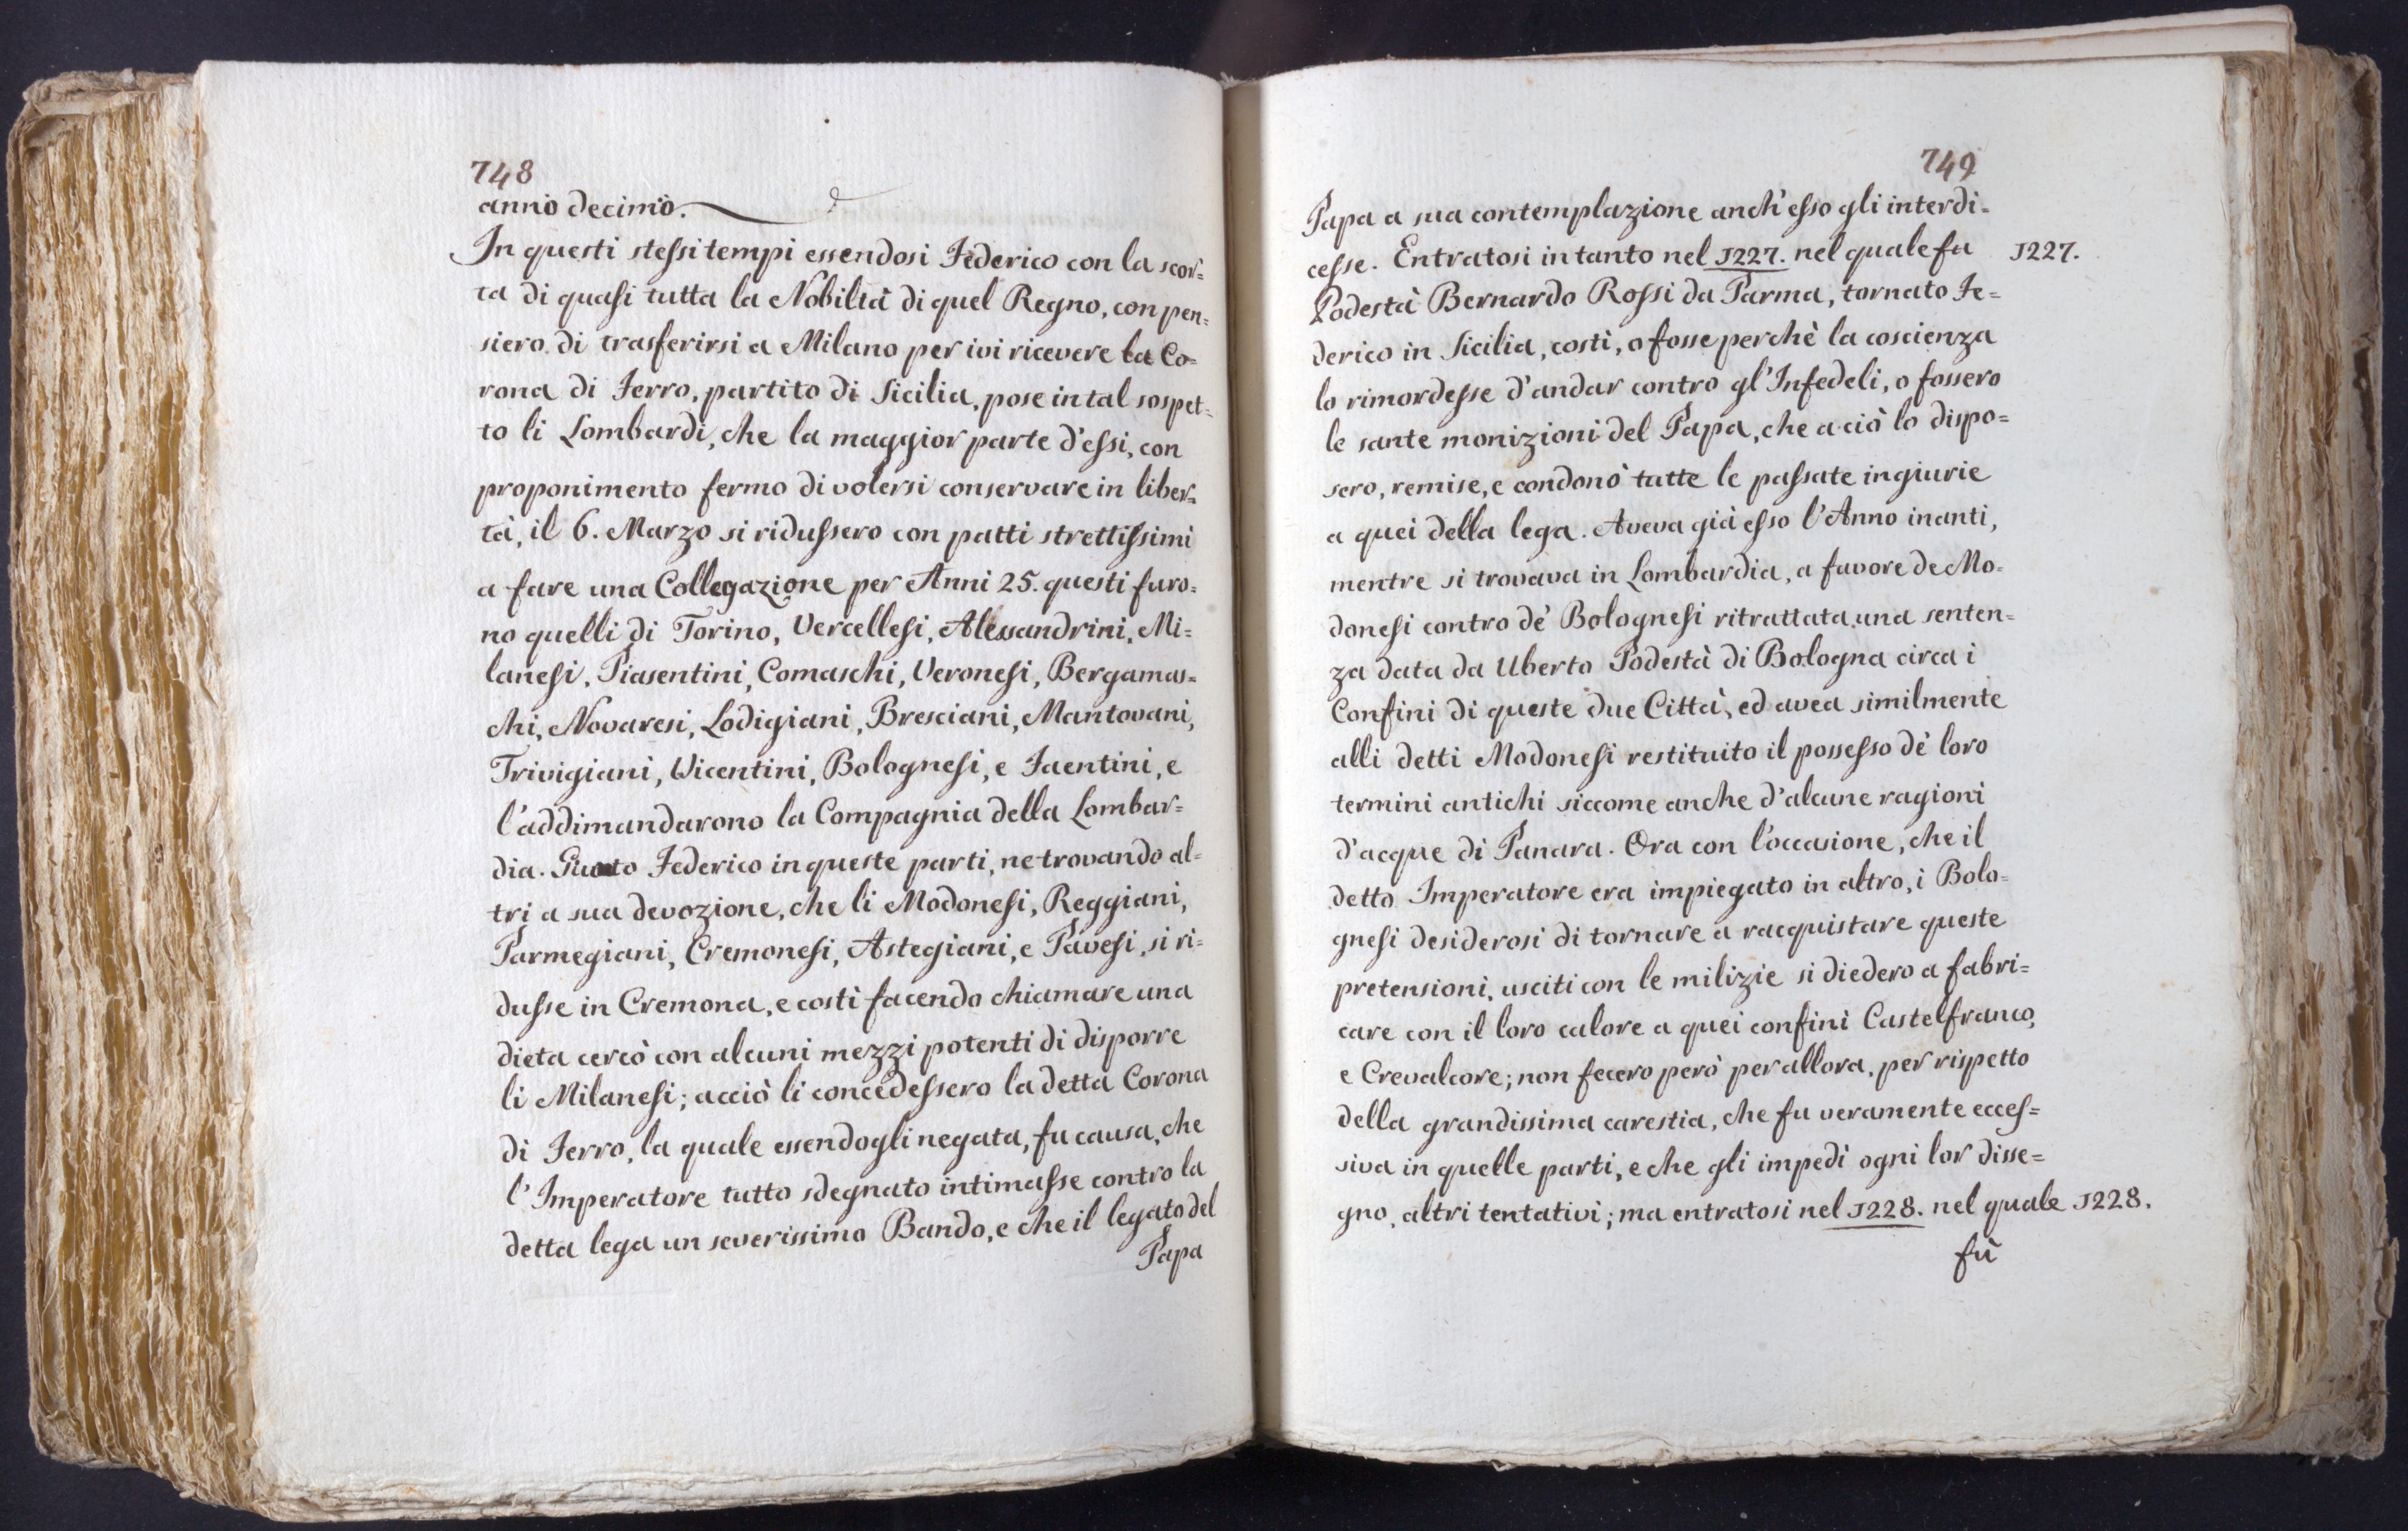 748
anno decimo.
In questi stessi tempi essendosi Federico con la scor=
ta di quasi tutta la Nobiltà di quel Regno, con pen=
siero di trasferirsi a Milano per ivi ricevere la Co=
rona di Ferro, partito di Sicilia, pose in tal sospet=
to li Lombardi, che la maggior parte d'essi, con
proponimento fermo di volersi conservare in liber=
tà, il 6. Marzo si ridussero con patti strettissimi
a fare una Collegazione per Anni 25. questi furo=
no quelli di Torino, Vercellesi, Alessandrini, Mi=
lanesi, Piasentini, Comaschi, Veronesi, Bergamas=
chi, Novaresi, Lodigiani, Bresciani, Mantovani,
Trivigiani, Vicentini, Bolognesi, e Faentini, e
l'addimandarono la Compagnia della Lombar=
dia. Giunto Federico in queste parti, ne trovando al=
tri a sua devozione, che li Modonesi, Reggiani,
Parmegiani, Cremonesi, Astegiani, e Pavesi, si ri=
dusse in Cremona, e costì facendo chiamare una
dieta cercò con alcuni mezzi potenti di disporre
li Milanesi; acciò li concedessero la detta Corona
di Ferro, la quale essendogli negata, fu causa, che
l'Imperatore tutto sdegnato intimasse contro la
detta lega un severissimo Bando, e che il legato del
Papa
749
Papa a sua contemplazione anch'esso gli interdi=
cesse. Entratosi in tanto nel 1227. nel quale fu 1227.
Podestà Bernardo Rossi da Parma, tornato Fe=
derico in Sicilia, costì, o fosse perchè la coscienza
lo rimordesse d'andar contro gl'Infedeli, o fossero
le sante monizioni del Papa, che a ciò lo dispo=
sero, remise, e condonò tutte le passate ingiurie
a quei della lega. Aveva già esso l'Anno inanti,
mentre si trovava in Lombardia, a favore de Mo=
donesi contro de' Bolognesi ritrattata una senten=
za data da Uberto Podestà di Bologna circa i
Confini di queste due Città, ed avea similmente
alli detti Modonesi restituito il possesso de' loro
termini antichi siccome anche d'alcune ragioni
d'acque di Panara. Ora con l'occasione, che il
detto Imperatore era impiegato in altro, i Bolo=
gnesi desiderosi di tornare a racquistare queste
pretensioni, usciti con le milizie si diedero a fabri=
care con il loro calore a quei confini Castelfranco,
e Crevalcore; non fecero però per allora, per rispetto
della grandissima carestia, che fu veramente ecces=
siva in quelle parti, e che gli impedì ogni lor disse=
gno, altri tentativi; ma entratosi nel 1228. nel quale 1228.
fù